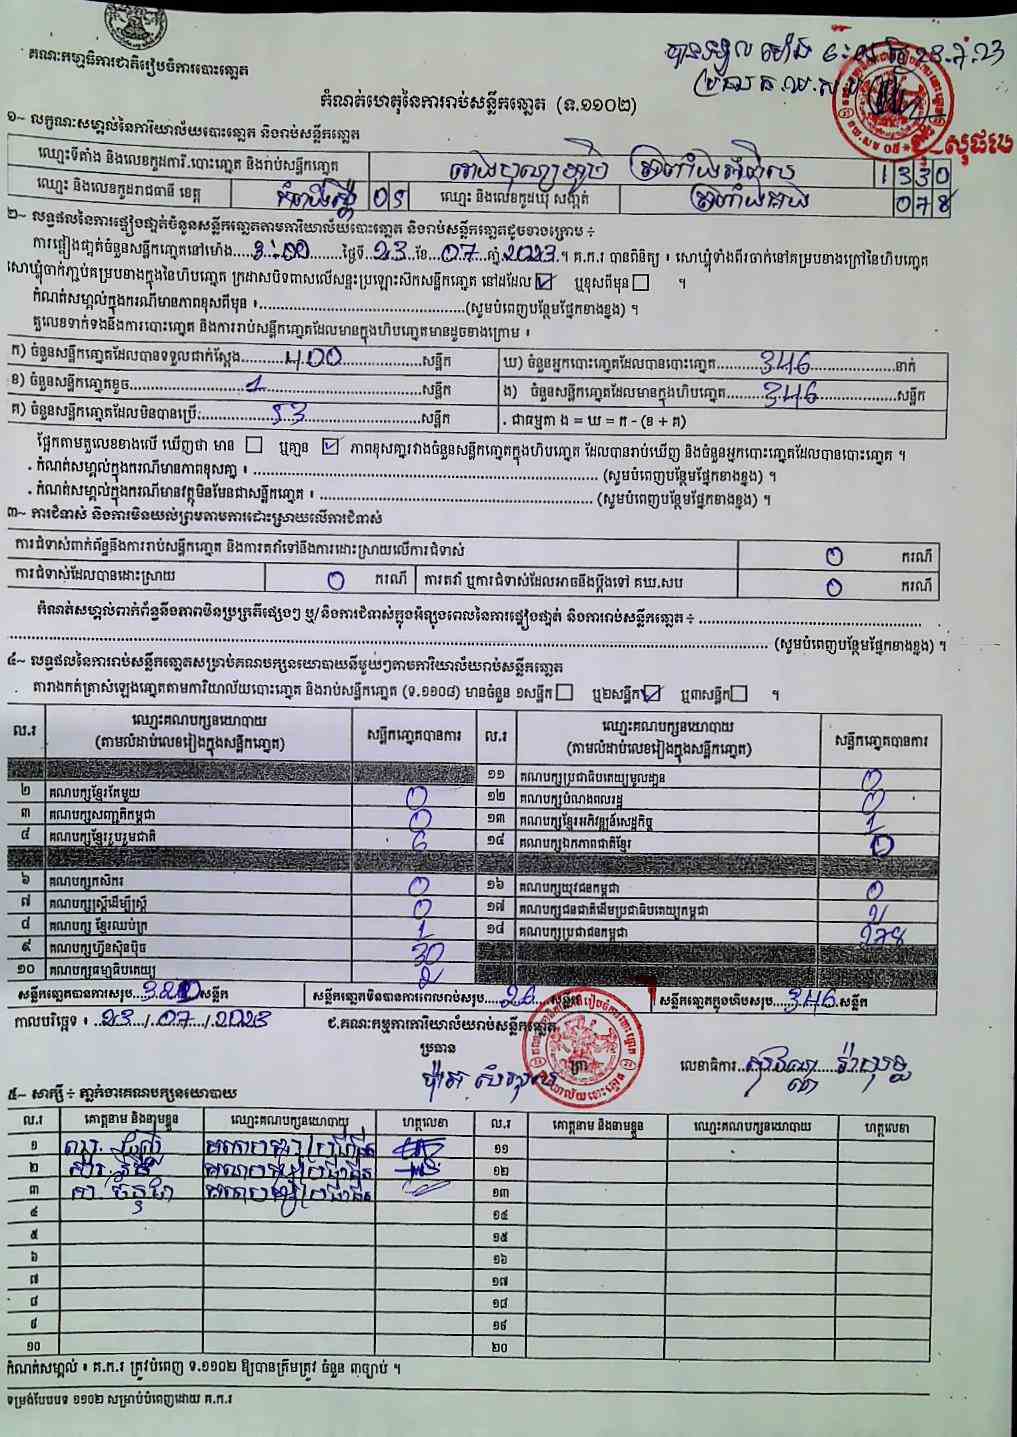 គណៈកម្មាធិការជាតិរៀបចំការបោះឆ្នោត
កំណត់ហេតុនៃការរាប់សន្លឹកឆ្នោត (ទ.១១០២)
១~ លក្ខណៈសម្គាល់នៃការិយាល័យបោះឆ្នោត និងរាប់សន្លឹកឆ្នោត
ឈ្មោះទីតាំង និងលេខកូដការិ.បោះឆ្នោត និងរាប់សន្លឹកឆ្នោត 1330
ឈ្មោះ និងលេខកូដរាជធានី ខេត្ត 05 ឈ្មោះ និងលេខកូដឃុំ សង្កាត់ 078
២~ លទ្ធផលនៃការផ្ទៀងផ្ទាត់ចំនួនសន្លឹកឆ្នោតតាមការិយាល័យបោះឆ្នោត និងរាប់សន្លឹកឆ្នោតដូចខាងក្រោម ÷
ការផ្ទៀងផ្ទាត់ចំនួនសន្លឹកឆ្នោតនៅម៉ោង 3:00 ថ្ងៃទី 23 ខែ 07 ឆ្នាំ 2023 ។ គ.ក.រ បានពិនិត្យ ៖ សោឃ្លុំទាំងពីរចាក់នៅគម្របខាងក្រៅនៃហិបឆ្នោត
សោឃ្លុំចាក់ភ្ជាប់គម្របខាងក្នុងនៃហិបឆ្នោត ក្រដាសបិទពាសលើសន្ទះប្រឡោះស៊កសន្លឹកឆ្នោត នៅដដែល ☑ ឬខុសពីមុន ☐ ។
កំណត់សម្គាល់ក្នុងករណីមានភាពខុសពីមុន ៖ (សូមបំពេញបន្ថែមផ្នែកខាងខ្នង) ។
តួលេខទាក់ទងនឹងការបោះឆ្នោត និងការរាប់សន្លឹកឆ្នោតដែលមានក្នុងហិបឆ្នោតមានដូចខាងក្រោម ៖
ក) ចំនួនសន្លឹកឆ្នោតដែលបានទទួលជាក់ស្តែង 400 សន្លឹក ឃ) ចំនួនអ្នកបោះឆ្នោតដែលបានបោះឆ្នោត 346 នាក់
ខ) ចំនួនសន្លឹកឆ្នោតខូច 1 សន្លឹក ង) ចំនួនសន្លឹកឆ្នោតដែលមានក្នុងហិបឆ្នោត 346 សន្លឹក
គ) ចំនួនសន្លឹកឆ្នោតដែលមិនបានប្រើ: 53 សន្លឹក . ជាធម្មតា ង = ឃ = ក - (ខ + គ)
ផ្អែកតាមតួលេខខាងលើ ឃើញថា មាន ☐ ឬគ្មាន ☑ ភាពខុសគ្នារវាងចំនួនសន្លឹកឆ្នោតក្នុងហិបឆ្នោត ដែលបានរាប់ឃើញ និងចំនួនអ្នកបោះឆ្នោតដែលបានបោះឆ្នោត ។
. កំណត់សម្គាល់ក្នុងករណីមានភាពខុសគ្នា ៖ (សូមបំពេញបន្ថែមផ្នែកខាងខ្នង) ។
. កំណត់សម្គាល់ក្នុងករណីមានវត្ថុមិនមែនជាសន្លឹកឆ្នោត ៖ (សូមបំពេញបន្ថែមផ្នែកខាងខ្នង) ។
៣~ ការជំទាស់ និងការមិនយល់ព្រមតាមការដោះស្រាយលើការជំទាស់
ការជំទាស់ពាក់ព័ន្ធនឹងការរាប់សន្លឹកឆ្នោត និងការតវ៉ាទៅនឹងការដោះស្រាយលើការជំទាស់ 0 ករណី
ការជំទាស់ដែលបានដោះស្រាយ 0 ករណី ការតវ៉ា ឬការជំទាស់ដែលអាចនឹងប្តឹងទៅ គឃ.សប 0 ករណី
កំណត់សម្គាល់ពាក់ព័ន្ធនឹងភាពមិនប្រក្រតីផ្សេងៗ ឬ/និងការជំទាស់ក្នុងអំឡុងពេលនៃការផ្ទៀងផ្ទាត់ និងការរាប់សន្លឹកឆ្នោត ÷
(សូមបំពេញបន្ថែមផ្នែកខាងខ្នង) ។
៤~ លទ្ធផលនៃការរាប់សន្លឹកឆ្នោតសម្រាប់គណបក្សនយោបាយនីមួយៗតាមការិយាល័យរាប់សន្លឹកឆ្នោត
តារាងកត់ត្រាសំឡេងឆ្នោតតាមការិយាល័យបោះឆ្នោត និងរាប់សន្លឹកឆ្នោត (ទ.១១០៨) មានចំនួន ១សន្លឹក ☐ ឬ២សន្លឹក ☑ ឬ៣សន្លឹក ☐ ។
ល.រ ឈ្មោះគណបក្សនយោបាយ (តាមលំដាប់លេខរៀងក្នុងសន្លឹកឆ្នោត) សន្លឹកឆ្នោតបានការ ល.រ ឈ្មោះគណបក្សនយោបាយ (តាមលំដាប់លេខរៀងក្នុងសន្លឹកឆ្នោត) សន្លឹកឆ្នោតបានការ
១១ គណបក្សប្រជាធិបតេយ្យមូលដ្ឋាន 0
២ គណបក្សខ្មែរតែមួយ 0 ១២ គណបក្សបំណងពលរដ្ឋ 0
៣ គណបក្សសញ្ជាតិកម្ពុជា 0 ១៣ គណបក្សខ្មែរអភិវឌ្ឍន៍សេដ្ឋកិច្ច 1
៤ គណបក្សខ្មែររួបរួមជាតិ 6 ១៤ គណបក្សឯកភាពជាតិខ្មែរ 0
៦ គណបក្សកសិករ 0 ១៦ គណបក្សយុវជនកម្ពុជា 0
៧ គណបក្សស្រ្តីដើម្បីស្រ្តី 0 ១៧ គណបក្សជនជាតិដើមប្រជាធិបតេយ្យកម្ពុជា
៨ គណបក្ស ខ្មែរឈប់ក្រ 1 ១៨ គណបក្សប្រជាជនកម្ពុជា
៩ គណបក្សហ៊្វុនស៊ិនប៉ិច 30
១០ គណបក្សធម្មាធិបតេយ្យ 2
សន្លឹកឆ្នោតបានការសរុប 320 សន្លឹក សន្លឹកឆ្នោតមិនបានការពេលរាប់សរុប 26 សន្លឹក សន្លឹកឆ្នោតក្នុងហិបសរុប 346 សន្លឹក
កាលបរិច្ឆេទ ៖ 23/07/2023 ជ.គណៈកម្មការការិយាល័យរាប់សន្លឹកឆ្នោត
ប្រធាន
ត្រា លេខាធិការ
៥~ សាក្សី ÷ ភ្នាក់ងារគណបក្សនយោបាយ
ល.រ គោត្តនាម និងនាមខ្លួន ឈ្មោះគណបក្សនយោបាយ ហត្ថលេខា ល.រ គោត្តនាម និងនាមខ្លួន ឈ្មោះគណបក្សនយោបាយ ហត្ថលេខា
១ ១១
២ ១២
៣ ១៣
៤ ១៤
៥ ១៥
៦ ១៦
៧ ១៧
៨ ១៨
៩ ១៩
១០ ២០
កំណត់សម្គាល់ ៖ គ.ក.រ ត្រូវបំពេញ ទ.១១០២ ឱ្យបានត្រឹមត្រូវ ចំនួន ៣ច្បាប់ ។
ទម្រង់បែបបទ ១១០២ សម្រាប់បំពេញដោយ គ.ក.រ